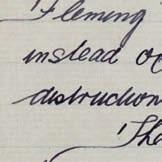 Fleming
instead
distruction